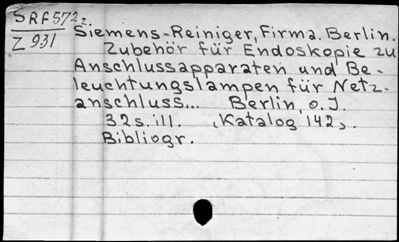 SRF572₂.
Z 931
Siemens-Reiniger, Firma. Berlin.
Zubehör für Endoskopie zu
Anschlussapparaten und Be-
leuchtungslampen für Netz-
anschluss... Berlin, o.J.
32s. ill. (Katalog 142).
Bibliogr.